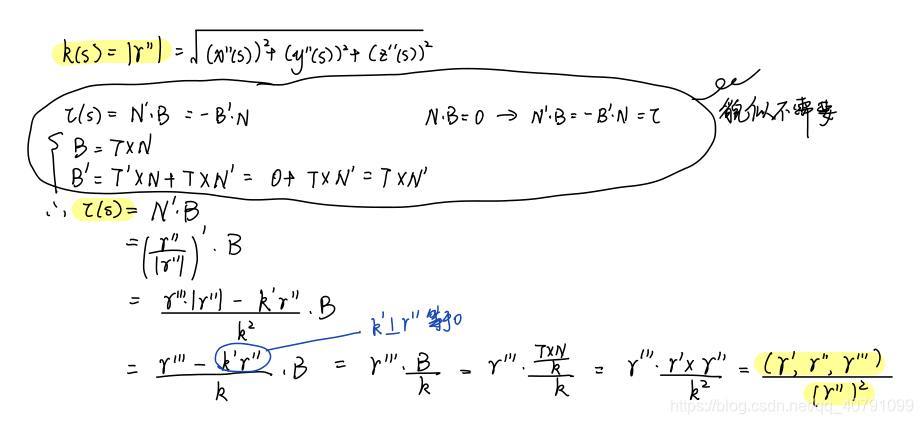 k(s) = |r''| = √((x''(s))² + (y''(s))² + (z''(s))²)
τ(s) = N'·B = -B'·N    N·B=0 → N'·B = -B'·N = τ    貌似不需要
{ B = T×N
B' = T'×N + T×N' = 0 + T×N' = T×N'
∴ τ(s) = N'·B
= (r''/|r''|)'·B
= (r'''·|r''| - k'r'')/k² ·B
k'⊥r'' 等于0
= (r''' - k'r'')/k ·B = r'''·B/k = r'''·((T×N)/k)/k = r'''·r'×r''/k² = (r', r'', r''')/(r'')²
https://blog.csdn.net/qq_40791099